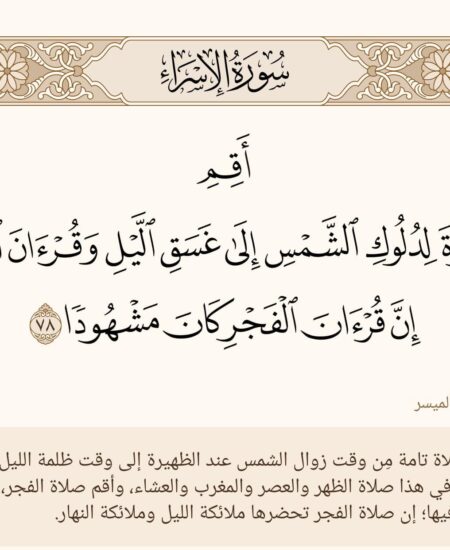 سُورَةُ الإِسْرَاءِ
أَقِمِ
لِدُلُوكِ ٱلشَّمْسِ إِلَىٰ غَسَقِ ٱلَّيْلِ وَقُرْءَانَ
إِنَّ قُرْءَانَ ٱلْفَجْرِ كَانَ مَشْهُودًا ٧٨
لميسر
لاة تامة مِن وقت زوال الشمس عند الظهيرة إلى وقت ظلمة الليل
في هذا صلاة الظهر والعصر والمغرب والعشاء، وأقم صلاة الفجر،
فيها؛ إن صلاة الفجر تحضرها ملائكة الليل وملائكة النهار.